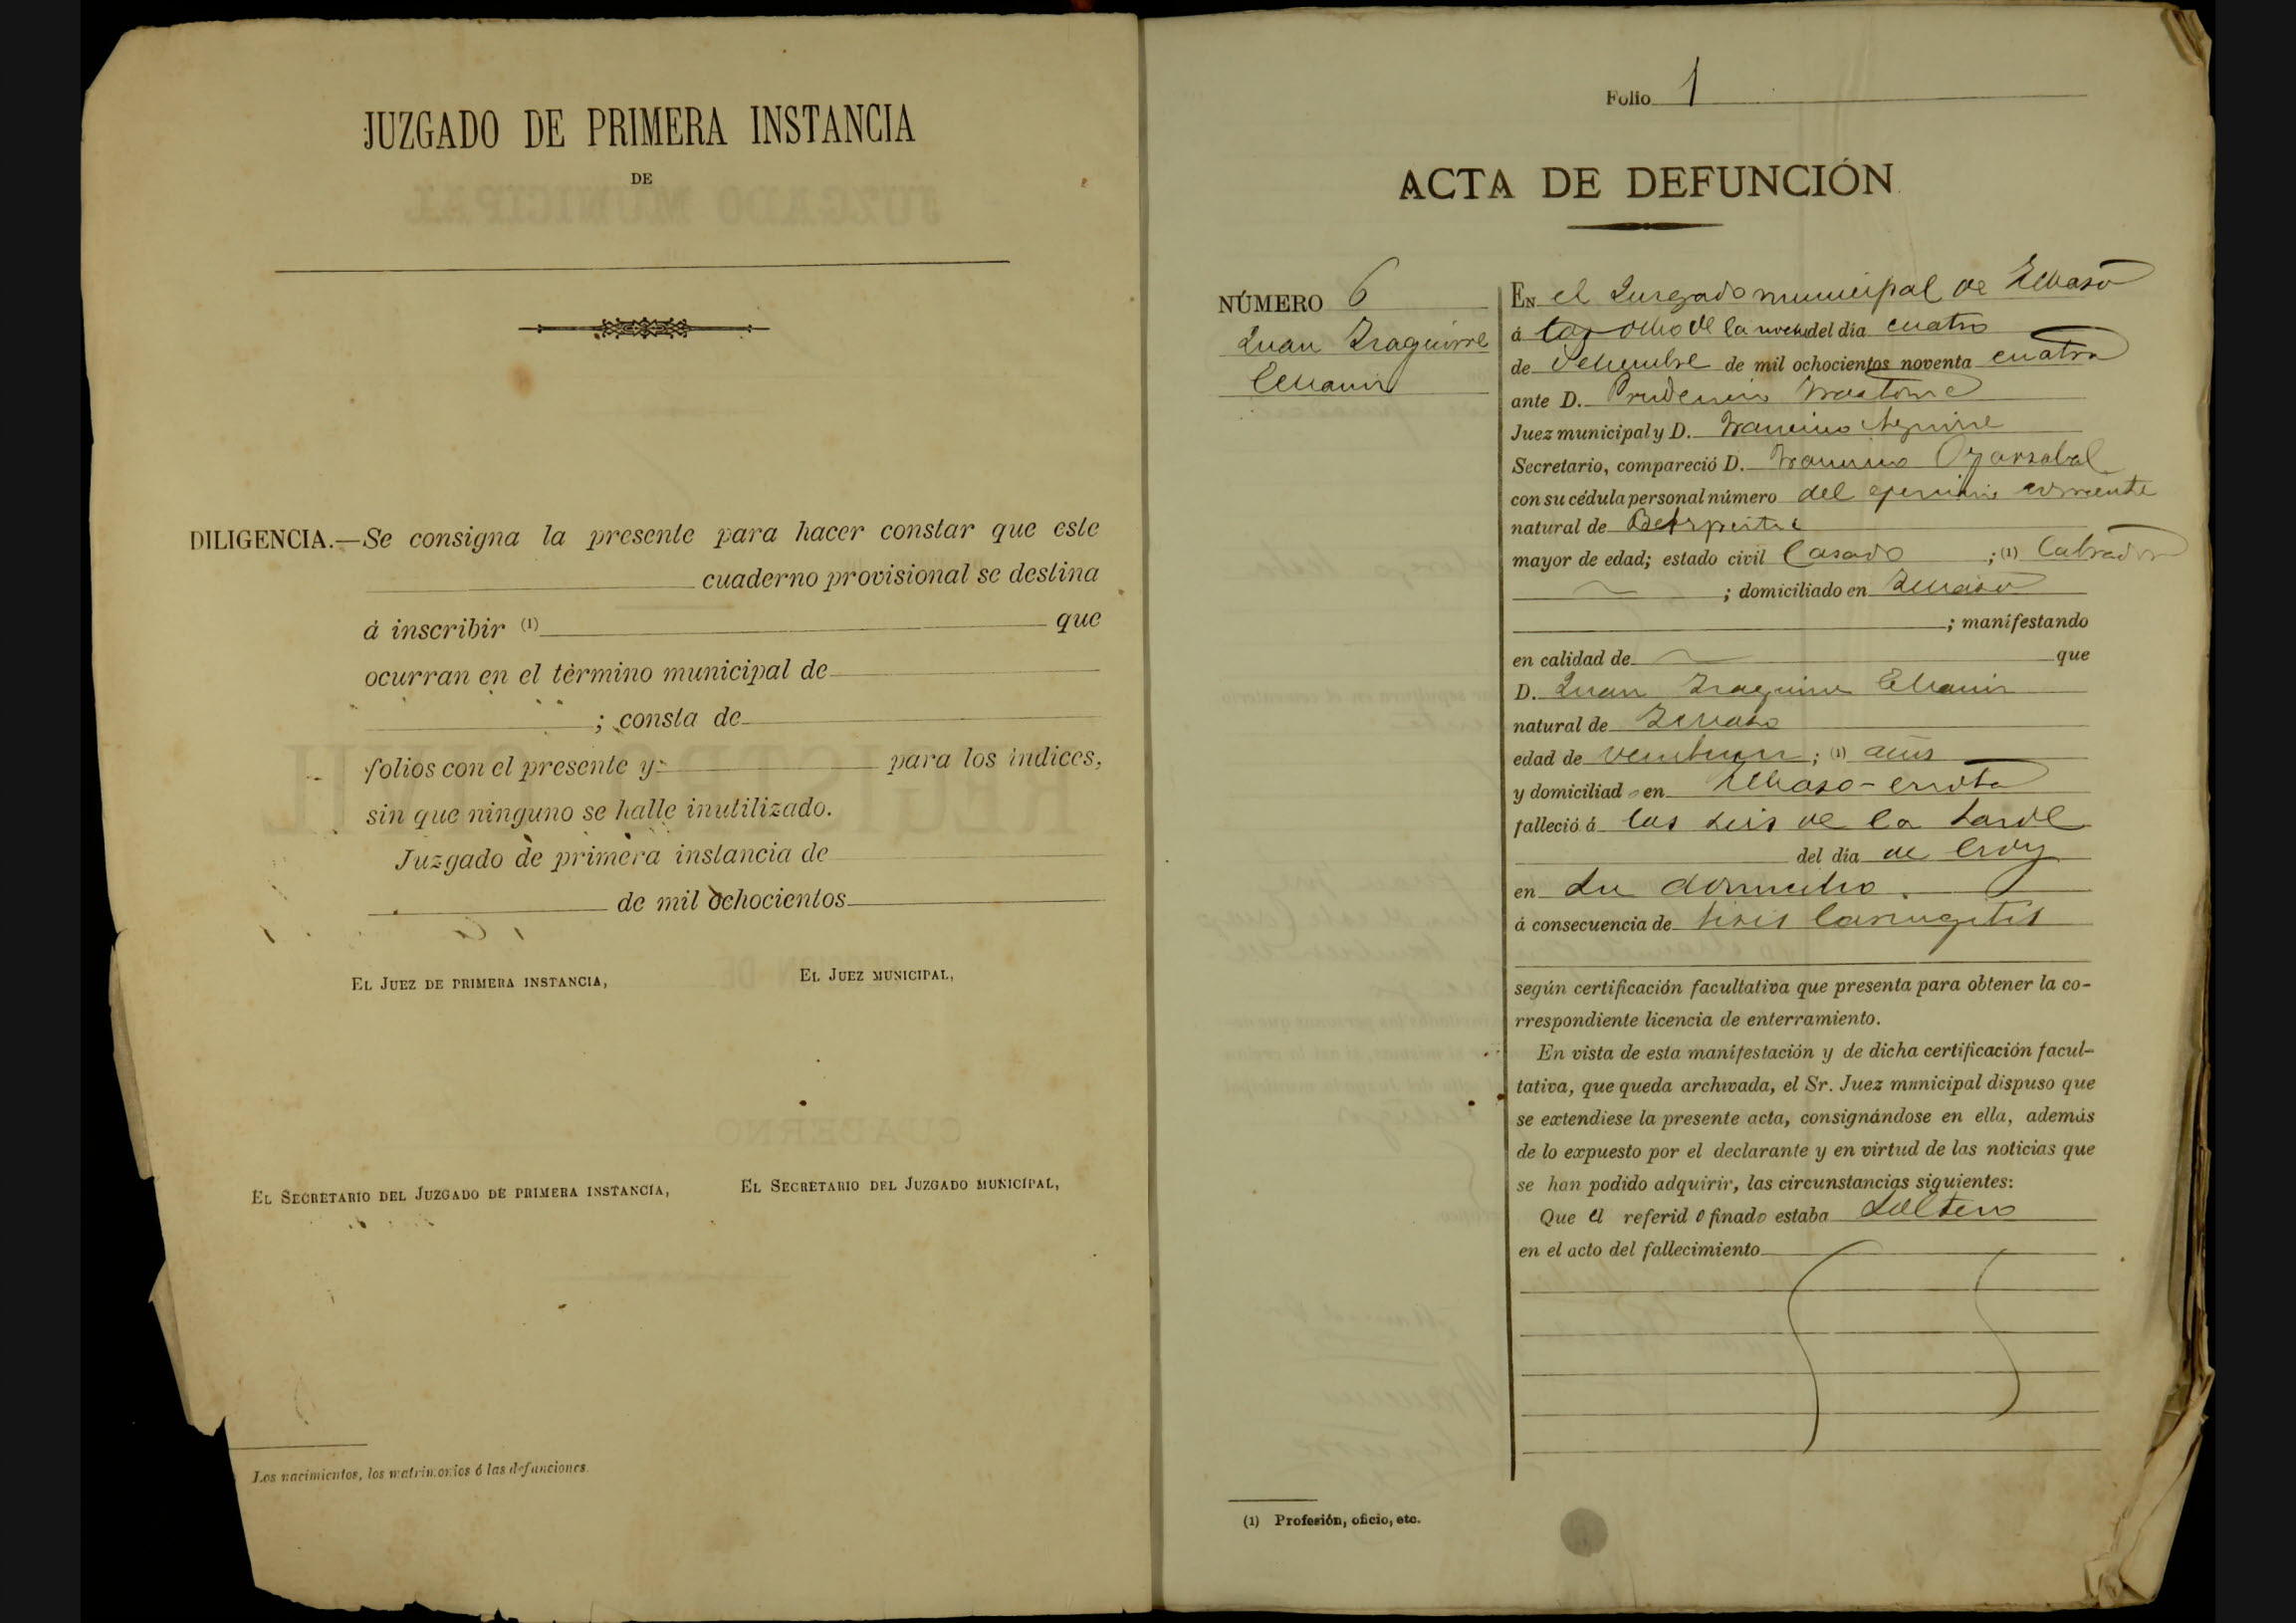 JUZGADO DE PRIMERA INSTANCIA
DE
DILIGENCIA.—Se consigna la presente para hacer constar que este
cuaderno provisional se destina
á inscribir (1) que
ocurran en el término municipal de
; consta de
folios con el presente y para los índices,
sin que ninguno se halle inutilizado.
Juzgado de primera instancia de
de mil ochocientos
EL JUEZ DE PRIMERA INSTANCIA,
EL JUEZ MUNICIPAL,
EL SECRETARIO DEL JUZGADO DE PRIMERA INSTANCIA,
EL SECRETARIO DEL JUZGADO MUNICIPAL,
Los nacimientos, los matrimonios ó las defunciones.
Folio 1
ACTA DE DEFUNCIÓN
NÚMERO 6
Juan Iraguirre
EN el Juzgado municipal de
á las ocho de la noche del día cuatro
de de mil ochocientos noventa cuatro
ante D. Prudencio
Juez municipal y D. Francisco Aguirre
Secretario, compareció D. Francisco Oyarzabal
con su cédula personal número del ejercicio corriente
natural de
mayor de edad; estado civil Casado ; (1) Labrador
; domiciliado en
; manifestando
en calidad de que
D. Juan Iraguirre
natural de
edad de ; (1) años
y domiciliado en
falleció á las seis de la tarde
del día de hoy
en su domicilio
á consecuencia de tisis laringitis
según certificación facultativa que presenta para obtener la co-
rrespondiente licencia de enterramiento.
En vista de esta manifestación y de dicha certificación facul-
tativa, que queda archivada, el Sr. Juez municipal dispuso que
se extendiese la presente acta, consignándose en ella, además
de lo expuesto por el declarante y en virtud de las noticias que
se han podido adquirir, las circunstancias siguientes:
Que el referido finado estaba soltero
en el acto del fallecimiento
(1) Profesión, oficio, etc.